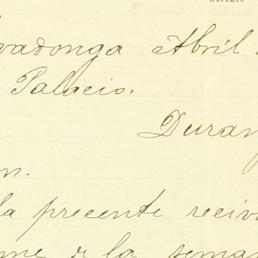 vadonga Abril
Palacio.
Duran
n.
la precente reciv
me de la seman